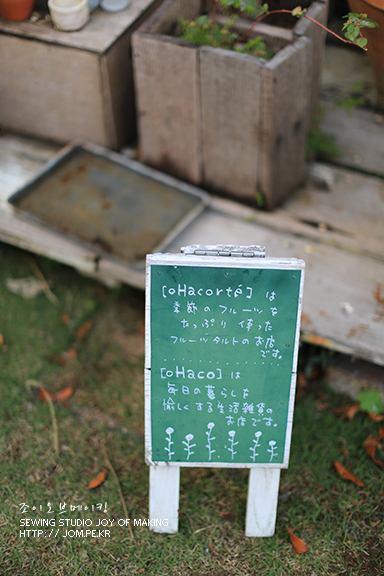 [oHacorté] は
季節のフルーツを
たっぷり使った
フルーツタルトのお店
です。
[oHaco] は
毎日の暮らしを
愉しくする生活雑貨の
お店です。
조이오브메이킹
SEWING STUDIO JOY OF MAKING
HTTP:// JOM.PE.KR